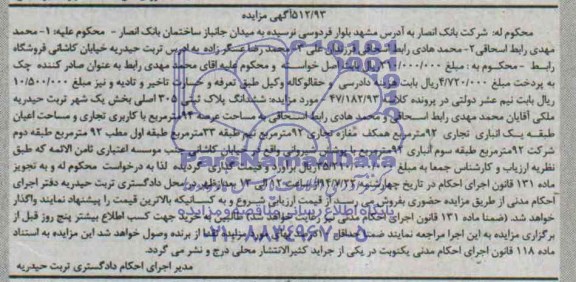 ۵۱۲/۹۳آگهی مزایده
محکوم له: شرکت بانک انصار به آدرس مشهد بلوار فردوسی نرسیده به میدان جانباز ساختمان بانک انصار - محکوم علیه: ۱-محمد
مهدی رابط اسحاقی۲- محمد هادی رابط اسحاقی فرزندان علی ۳- محمد رضا عسگر زاده به آدرس تربت حیدریه خیابان کاشانی فروشگاه
رابـط -محکـوم به : مبلغ ریال بابت خواسته و محکوم علیه آقای محمد مهدی رابط به عنوان صادر کننده چک
به پرداخت مبلغ ۴/۷۲۰/۰۰۰ریال بابت هزینه دادرسی و حقالوکاله وکیل طبق تعرفه و خسارت تاخیر و تادیه و نیز مبلغ ۱۰/۵۰۰/۰۰۰
ریال بابت نیم عشر دولتی در پرونده کلاسه ۴۷/۱۸۲/۹۳ مورد مزایده: ششدانگ پلاک ثبتی ۳۰۵ اصلی بخش یک شهر تربت حیدریه
ملکی آقایان محمد مهدی رابط اسـحاقی و محمد هادی رابط اسحاقی به مساحت عرصه ۹۳مترمربع با کاربری تجاری و مساحت اعیان
طبقـه یـک انباری تجاری ۹۲مترمربع همکف مغازه تجاری ۹۲مترمربع نیم طبقه ۳۳مترمربع طبقه اول مطب ۹۲ مترمربع طبقه دوم
شرکت ۹۲مترمربع طبقه سوم انباری ۹۲مترمربع با پوشش شیروانی واقع در خیابان کاشانی جنب موسسه اعتباری ثامن الائمه که طبق
نظریه ارزیاب و کارشناس جمعا به مبلغ ریال برآورد و قیمت گذاری گردیده لذا به درخواست محکوم له و به تجویز
ماده ۱۳۱ قانون اجرای احکام در تاریخ چهارشنبه از ساعت ۱۲ الی ۱۳ بعدازظهر در محل دادگستری تربت حیدریه دفتر اجرای
احکام مدنی از طریق مزایده حضوری بفروش می رسد از قیمت ارزیابی شـروع و به کسـانیکه بالاترین قیمت را پیشنهاد نمایند واگذار
خواهد شد. (ضمنا ماده ۱۳۱ قانون اجرای احکام مدنی نیز رعایت خواهد شد) خرید جهت کسب اطلاع بیشتر پنج روز قبل از
برگزاری مزایده به این اجرا مراجعه نمایند ضمنا حداقل ۱۰ درصد بهای مورد مزایده نقدا از برنده وصول خواهد شد این مزایده به استناد
ماده ۱۱۸ قانون اجرای احکام مدنی یکنوبت در یکی از جراید کثیرالانتشار محلی درج و نشر می گردد.
مدیر اجرای احکام دادگستری تربت حیدریه
ParsNamadData
پایگاه اطلاع رسانی مناقصه و مزایده
۰۲۱-۸۸۳۴۹۶۷۰-۵